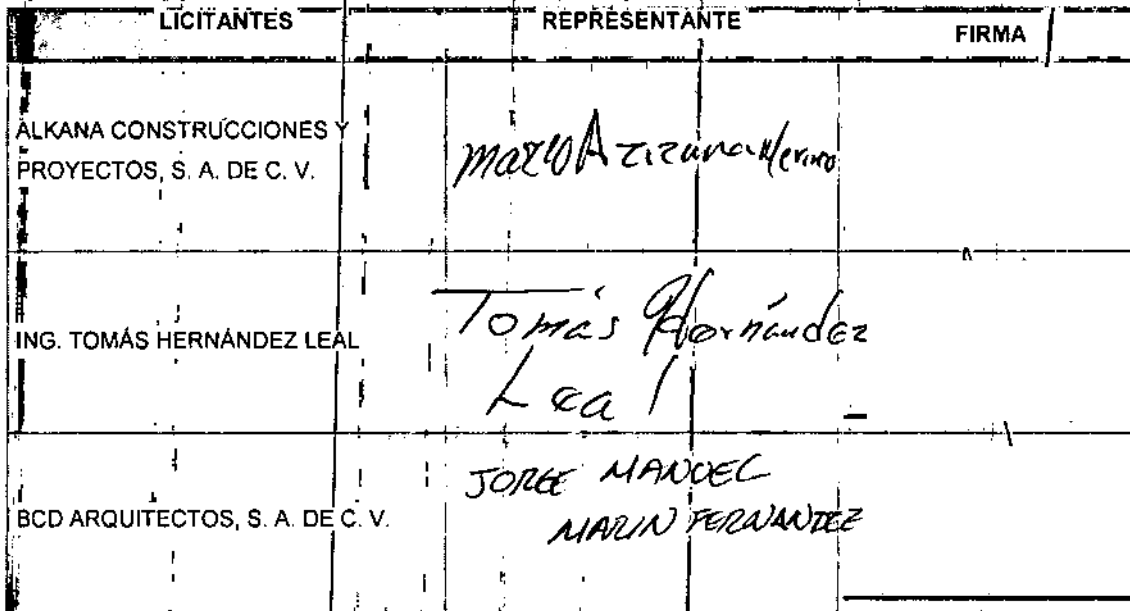 LICITANTES REPRESENTANTE FIRMA
ALKANA CONSTRUCCIONES Y
PROYECTOS, S. A. DE C. V.
ING. TOMÁS HERNÁNDEZ LEAL
Tomás Hernández
Leal
BCD ARQUITECTOS, S. A. DE C. V.
JORGE MANUEL
MARIN FERNANDEZ